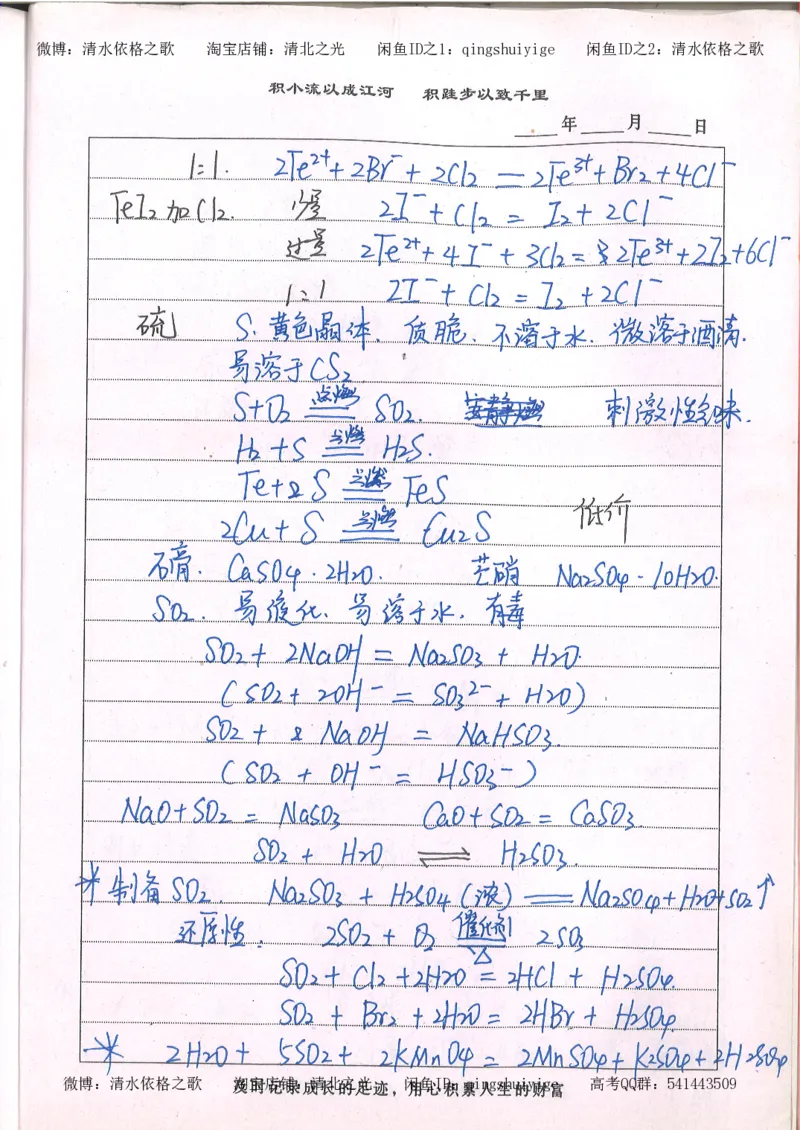 微博：清水依格之歌 淘宝店铺：清北之光 闲鱼ID之1：qingshuiyige 闲鱼ID之2：清水依格之歌
积小流以成江河 积跬步以致千里
年 月 日
1:1. 2Fe²⁺+2Br⁻+2Cl₂=2Fe³⁺+Br₂+4Cl⁻
FeI₂加Cl₂. 少量 2I⁻+Cl₂=I₂+2Cl⁻
过量 2Fe²⁺+4I⁻+3Cl₂=2Fe³⁺+2I₂+6Cl⁻
1:1 2I⁻+Cl₂=I₂+2Cl⁻
硫 S. 黄色晶体、质脆、不溶于水、微溶于酒精.
易溶于CS₂
S+O₂ 点燃 SO₂. 刺激性气味.
H₂+S 点燃 H₂S.
Fe+S 点燃 FeS
2Cu+S 点燃 Cu₂S 低价
石膏. CaSO₄·2H₂O. 芒硝 Na₂SO₄·10H₂O.
SO₂. 易液化、易溶于水、有毒
SO₂+2NaOH=Na₂SO₃+H₂O.
(SO₂+2OH⁻=SO₃²⁻+H₂O)
SO₂+NaOH=NaHSO₃.
(SO₂+OH⁻=HSO₃⁻)
NaO+SO₂=NaSO₃ CaO+SO₂=CaSO₃
SO₂+H₂O⇌H₂SO₃.
*制备SO₂. Na₂SO₃+H₂SO₄(浓)=Na₂SO₄+H₂O+SO₂↑
还原性: 2SO₂+O₂ 催化剂 △ 2SO₃
SO₂+Cl₂+2H₂O=2HCl+H₂SO₄.
SO₂+Br₂+2H₂O=2HBr+H₂SO₄.
* 2H₂O+5SO₂+2KMnO₄=2MnSO₄+K₂SO₄+2H₂SO₄
微博：清水依格之歌 淘宝店铺：清北之光 闲鱼ID：qingshuiyige 高考QQ群：541443509
及时记录成长的足迹，用心积累人生的财富